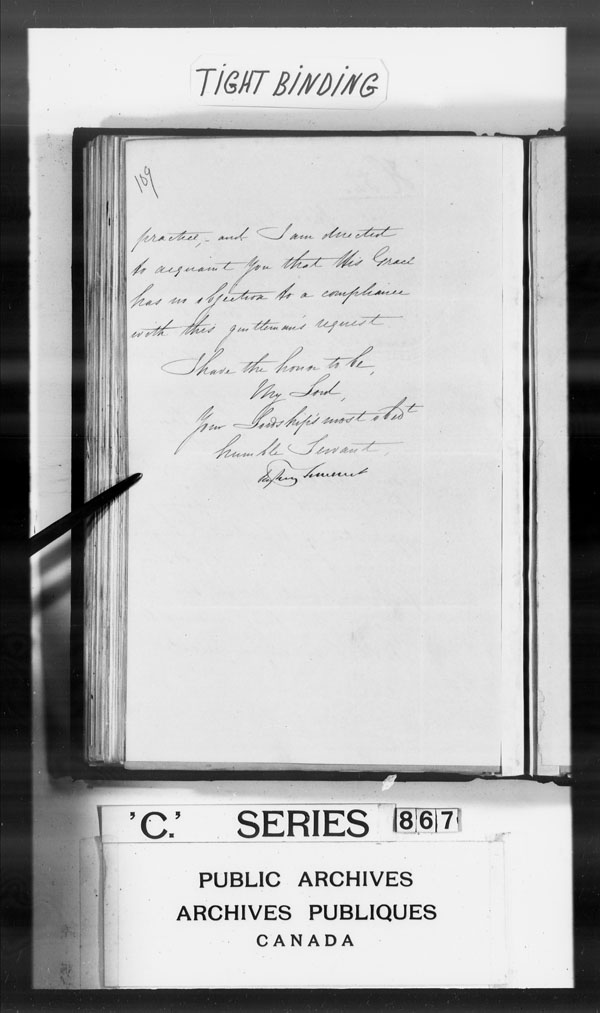 TIGHT BINDING
189
practice, and I am directed
to acquaint You that His Grace
has no objection to a compliance
with this gentleman's request
I have the honor to be,
My Lord,
Your Lordship's most obedt
humble Servant,
Fitzroy Somerset
'C.' SERIES 867
PUBLIC ARCHIVES
ARCHIVES PUBLIQUES
CANADA